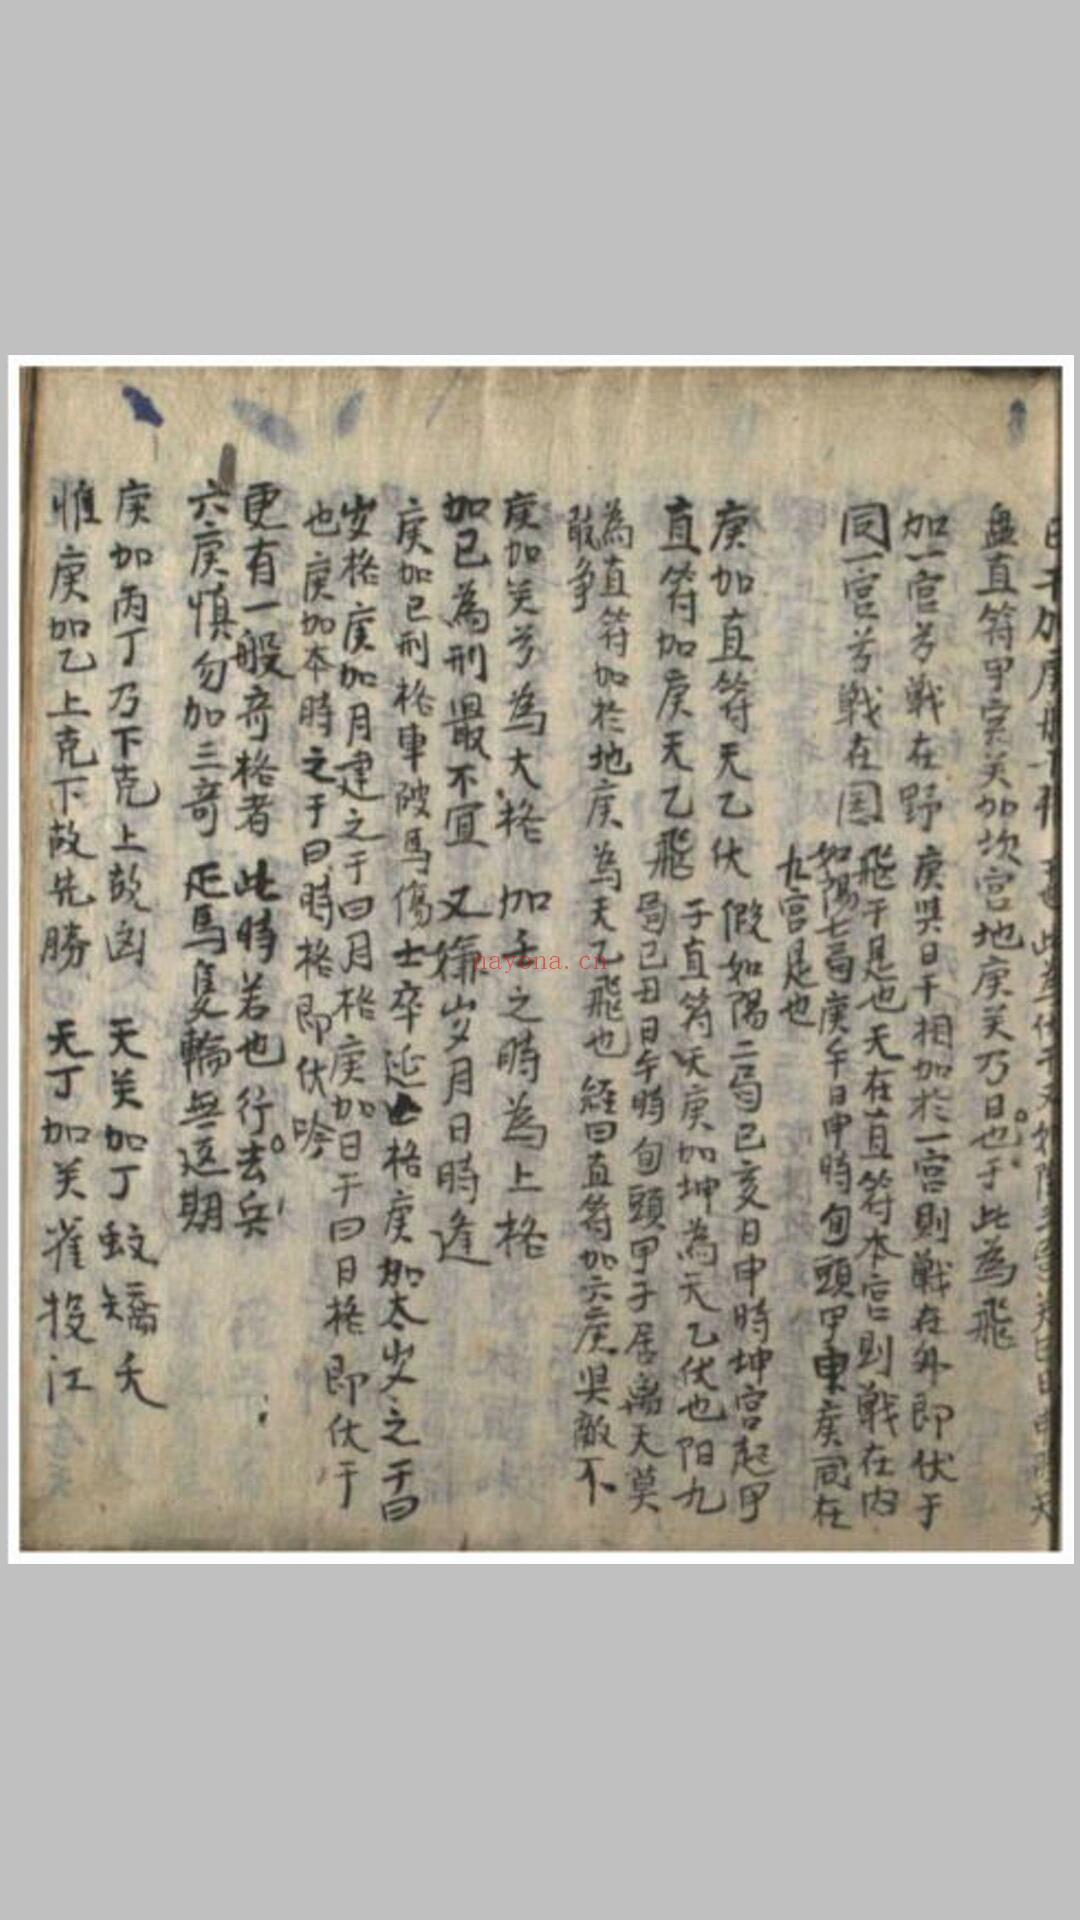 日干加庚
盘直符甲寅癸加坎宫地庚癸乃日也于此為飛
加一宫兮戰在野 庚與日干相加於一宫則戰在外即伏于
同一宫兮戰在国 飛干是也天在直符本宫則戰在内
如陽七局庚午日申時旬頭甲申庚同在
九宫是也
庚加直符天乙伏 假如陽二局已亥日申時坤宫起甲
直符加庚天乙飛 子直符天庚加坤為天乙伏也阳九
局已丑日午時旬頭甲子居离天英
為直符加於地庚為天乙飛也 經曰直符加六庚與敵不
敢争
庚加癸兮為大格 加壬之時為上格
加已為刑最不宜 又嫌岁月日時逢
庚加已刑格車破馬傷士卒延 格庚加太岁之于曰
岁格庚加月建之于曰月格庚加日干曰日格即伏于
也庚加本時之于曰時格即伏吟
更有一般奇格者 此時若也行去兵
六庚慎勿加三奇 疋馬隻輪無返期
庚加丙丁乃下克上故凶 天癸加丁蛟矯夭
惟庚加乙上克下故先勝 天丁加癸雀投江
nayona.cn